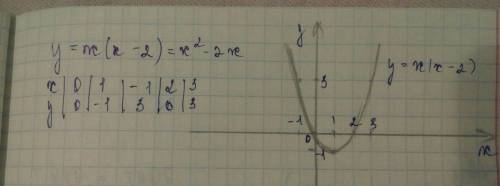 y = x(x - 2) = x² - 2x
x | 0 | 1 | -1 | 2 | 3
y | 0 | -1 | 3 | 0 | 3
y
y = x(x - 2)
3
-1 0 1 2 3
-1
x